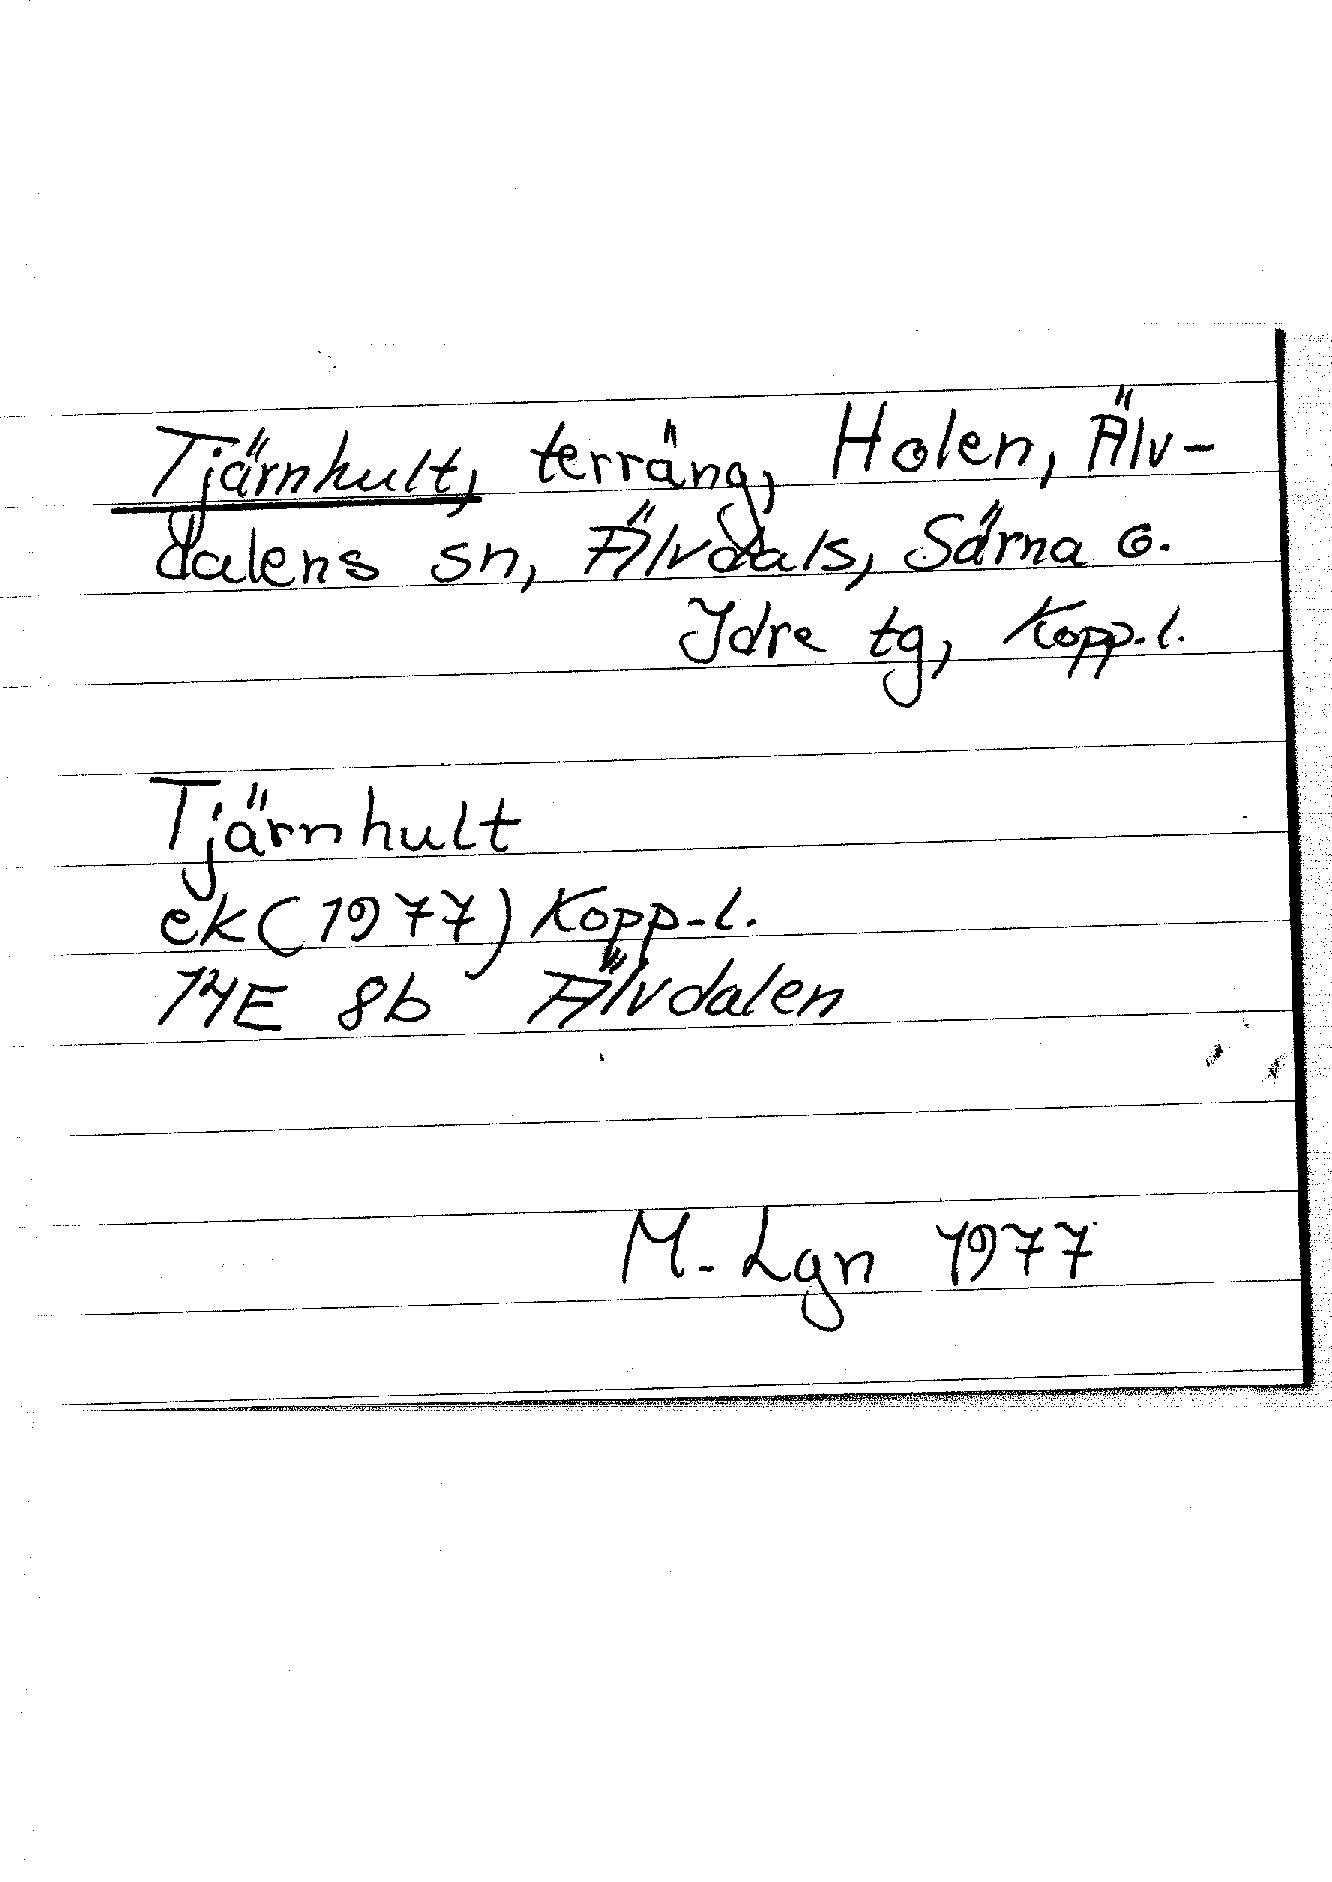 Tjärnhult, terräng, Holen, Älv-
dalens sn, Älvdals, Särna o.
Idre tg, Kopp.l.
Tjärnhult
ek (1977) Kopp.l.
14E 8b Älvdalen
M. Lgn 1977